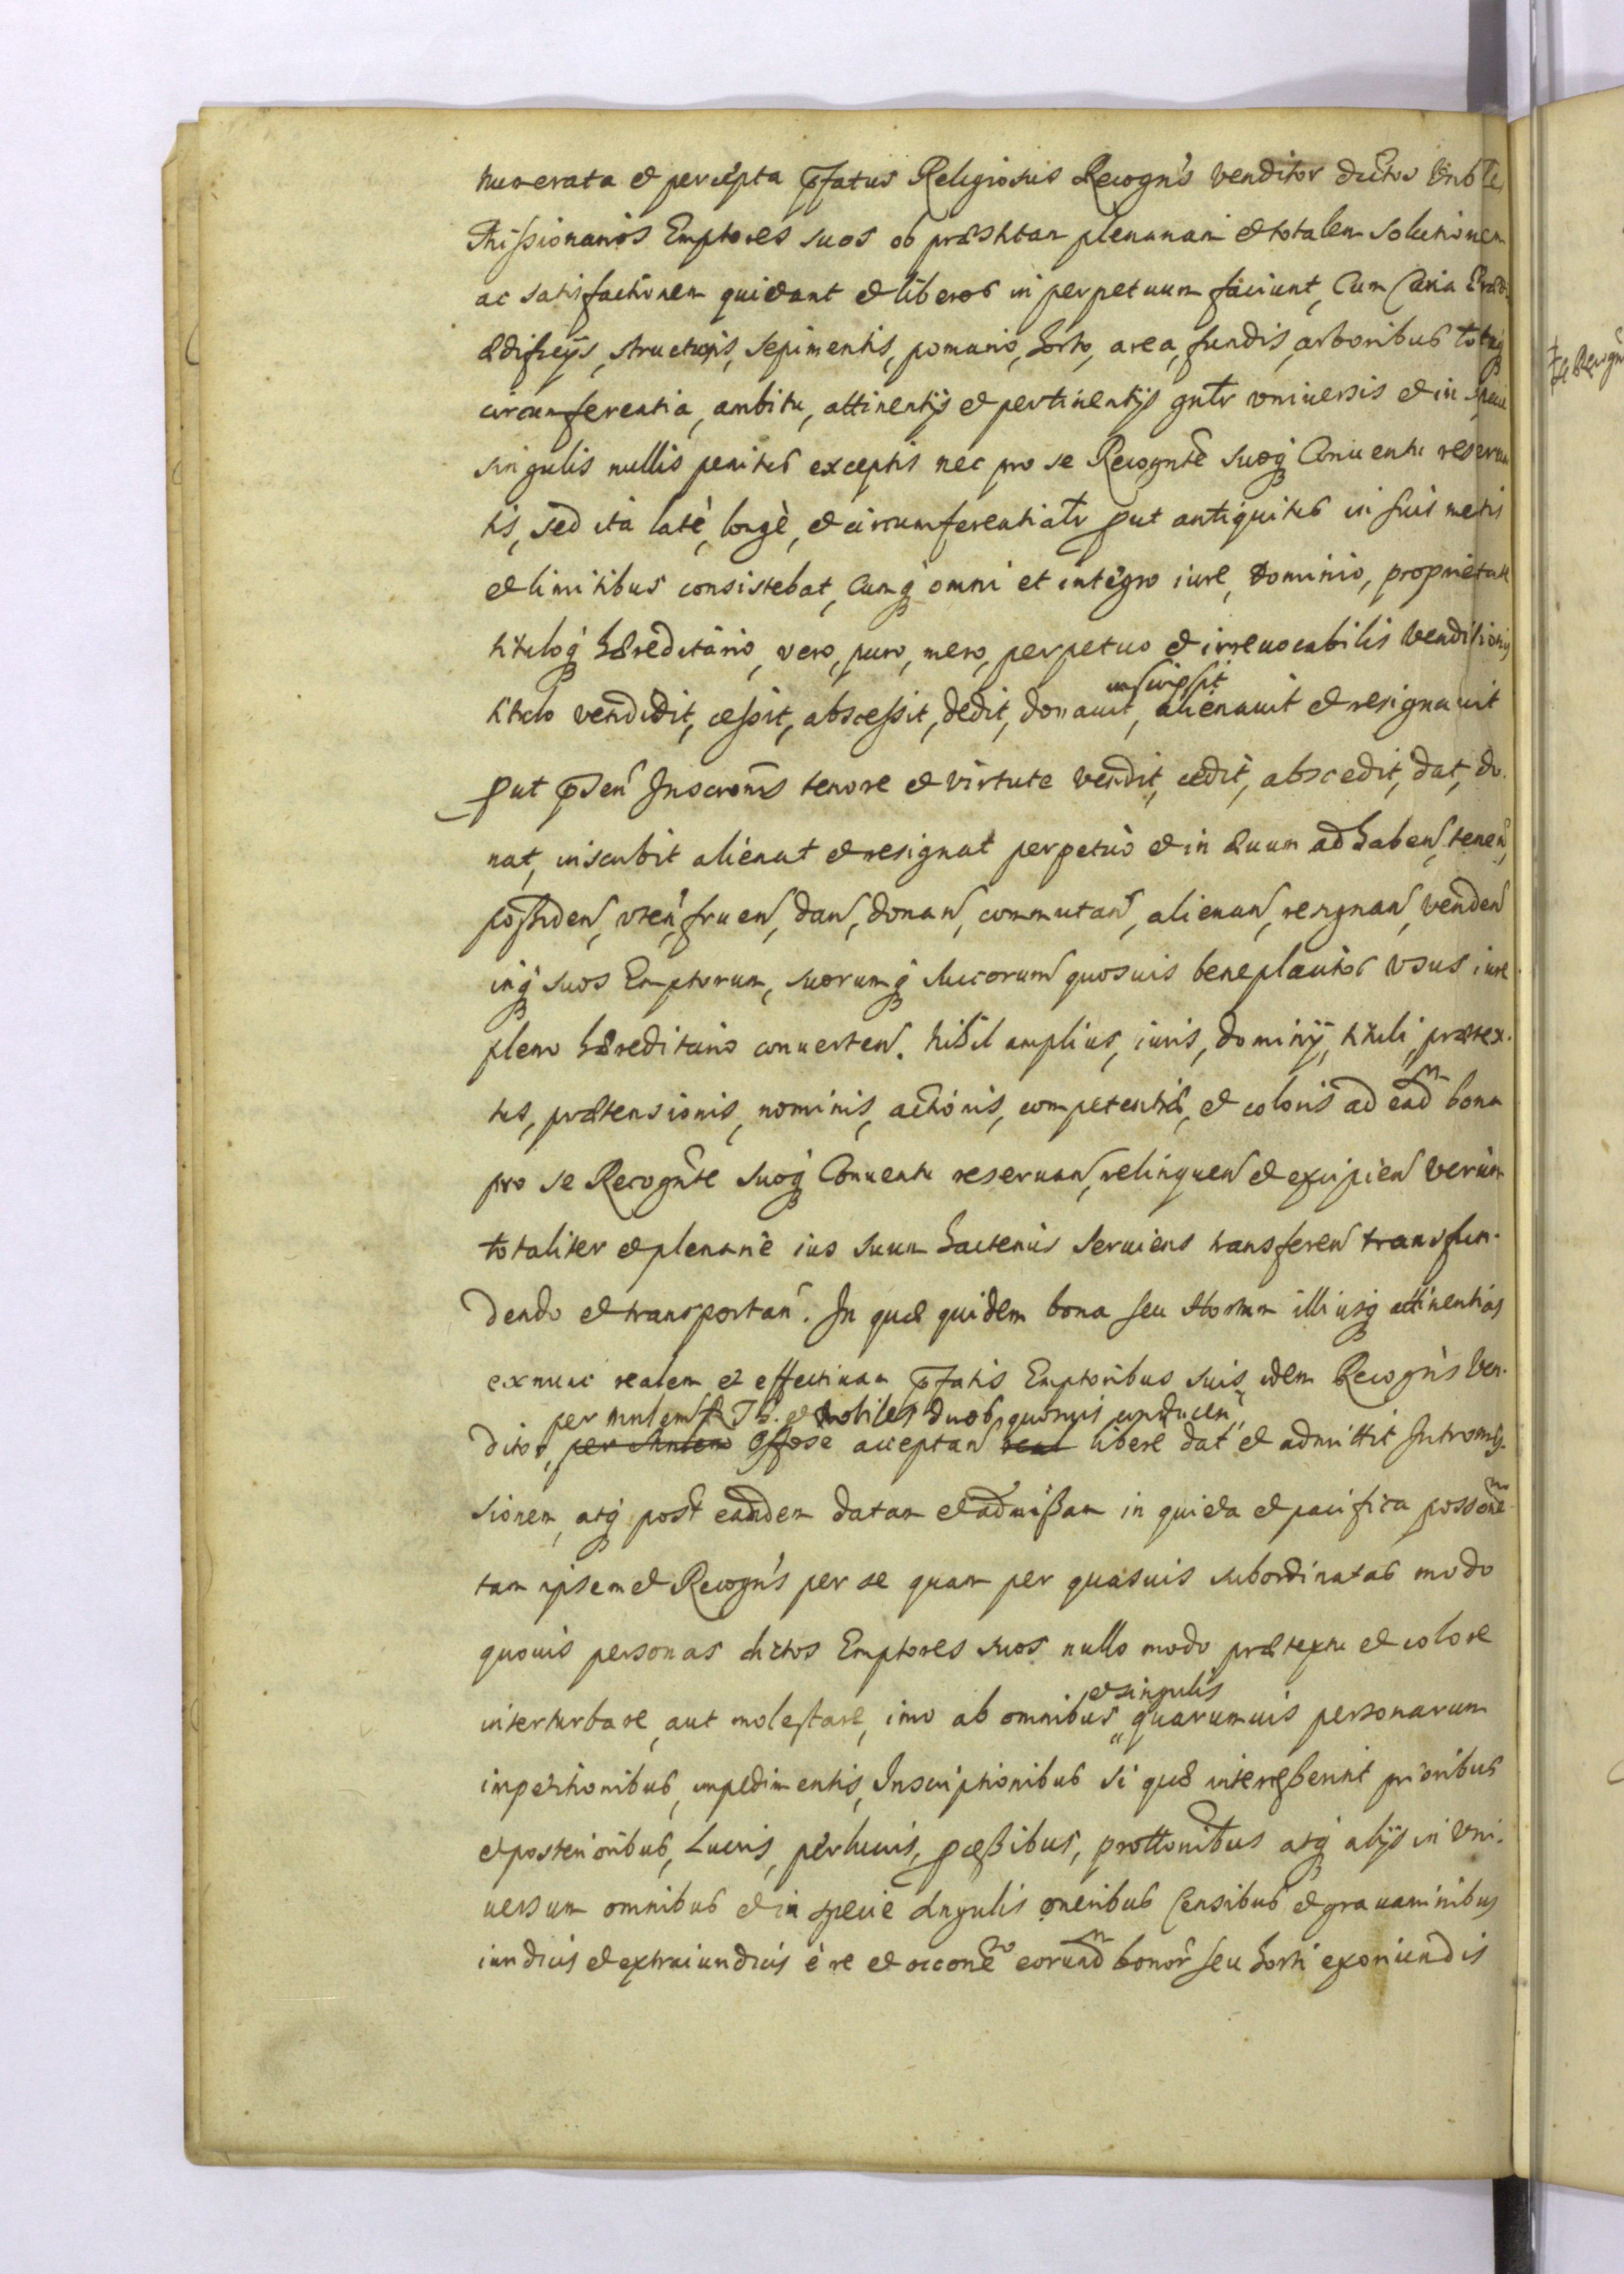 numerata et percepta p̄fatus Religiosus Recogn̄s venditor dictos
Missionarios Emptores suos ob præstitam plenariam et totalem solutionem
ac satisfactionem quietant et liberos in perpetuum faciunt, Cum
ædificijs, structuris, sepimentis, pomario, horto, area, fundis, arboribus totaq́
circumferentia, ambitu, attinentijs et pertinentijs gn̄lr vniuersis et in specie
singulis nullis penitus exceptis nec pro se Recogn̄te suoq́ Conuentu reserua
tis, sed ita latè, longè, et circumferentialr put antiquitus in suis metis
et limitibus consistebat, Cumq́ omni et integro iure, dominio, proprietate
tituloq́ hæreditario, vero, puro, mero, perpetuo et irreuocabilis venditionis
inscripsit
titulo vendidit, cessit, abscessit, dedit, donauit, alienauit et resignauit
put p̄sen̄ Inscronis tenore et virtute vendit, cedit, abscedit, dat, do-
nat, inscribit alienat et resignat perpetuò et in æuum ad haben̄, tenen̄,
possiden̄, vten̄, fruen̄, dan̄, donan̄, commutan̄, alienan̄, resignan̄, venden̄
inq́ suos Emptorum, suorumq́ succorum quosuis beneplacitos vsus iure
pleno hæreditario conuerten̄. Nihil amplius, iuris, dominij, tituli, prætex-
tus, prætensionis, nominis, actionis, competentiæ, et coloris ad eadm bona
pro se Recogn̄te suoq́ Conuentu reseruan̄, relinquen̄ et excipien̄ verùm
totaliter et plenariè ius suum hactenus seruiens transferen̄ transfun-
dendo et transportan̄. In quæ quidem bona seu Hortum illiusq́ attinentias
exnunc realem et effectiuam p̄fatis Emptoribus suis idem Recogn̄s Ven-
per et Nobiles duos quosuis conducen̄
ditor, acceptan̄ liberè dat et admittit Intromis-
sionem, atq́ post eandem datam et admissam in quieta et pacifica possone
tam ipsemet Recogn̄s per se quam per quasuis subordinatas modo
quouis personas dictos Emptores suos nullo modo prætextu et colore
et singulis
interturbare, aut molestare, imo ab omnibus quarumuis personarum
impetitionibus, impedimentis, Inscriptionibus si quæ interesserint prioribus
et posterioribus, Lucris, perlucris, pcessibus, atq́ alijs in vni-
uersum omnibus et in specie singulis oneribus Censibus et grauaminibus
iuridicis et extraiuridicis è re et occone eorundm bonor̄ seu horti exoriundis